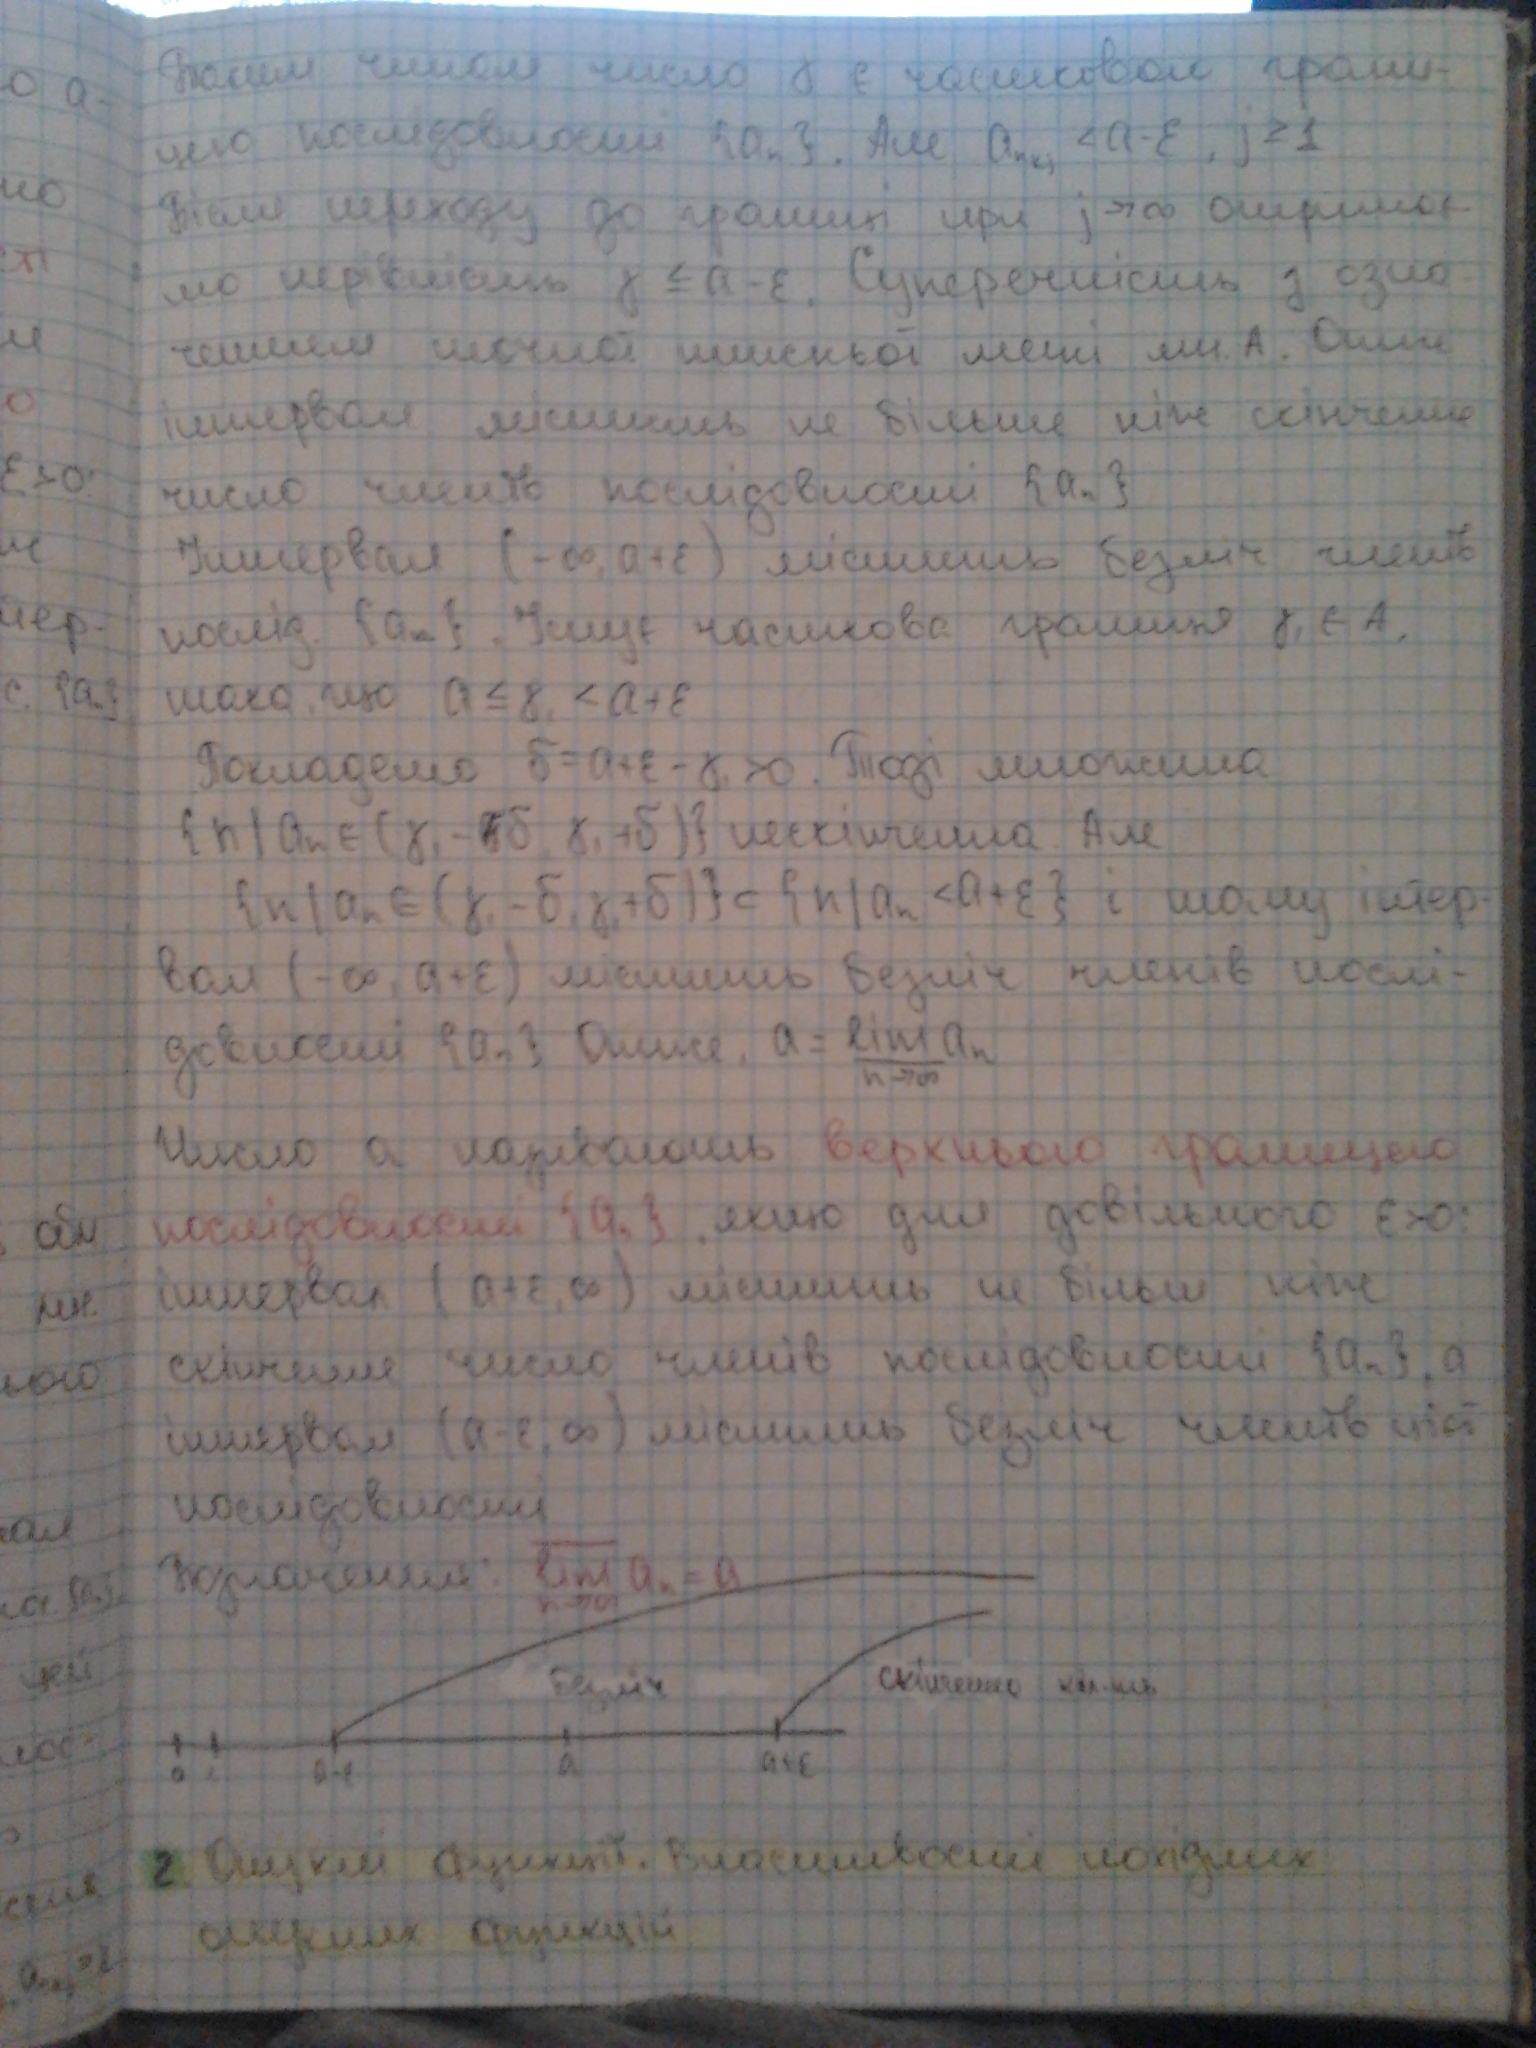 о а-
Таким чином число γ є частковою грани-
цею послідовності {aₙ}. Але aₙₖⱼ < a-ε, j ≥ 1
но
Після переходу до границі при j→∞ отримає-
сті
мо нерівність γ ≤ a-ε. Суперечність з озна-
м
ченням точної нижньої межі мн. A. Отже
о
інтервал містить не більше ніж скінченне
ε>0:
число членів послідовності {aₙ}
Інтервал (-∞, a+ε) містить безліч членів
тер-
послід. {aₙ}. Існує часткова границя γ₁ ∈ A,
с. {aₙ}
така, що a ≤ γ₁ < a+ε
Покладемо δ = a+ε - γ₁ >0. Тоді множина
{n | aₙ ∈ (γ₁ - δ, γ₁+δ)} нескінченна. Але
{n | aₙ ∈ (γ₁ - δ, γ₁+δ)} ⊂ {n | aₙ < a+ε} і тому інтер-
вал (-∞, a+ε) містить безліч членів послі-
довності {aₙ} Отже, a = lim aₙ
n→∞
Число a називають верхньою границею
обм
послідовності {aₙ}, якщо для довільного ε>0:
мн.
інтервал (a+ε, ∞) містить не більш ніж
ього
скінченне число членів послідовності {aₙ}, а
інтервал (a-ε, ∞) містить безліч членів цієї
послідовності
Позначення: lim aₙ = a
n→∞
безліч скінченна кіл-ть
0 1 a-ε a a+ε
2. Опуклі функції. Властивості похідних
опуклих функцій